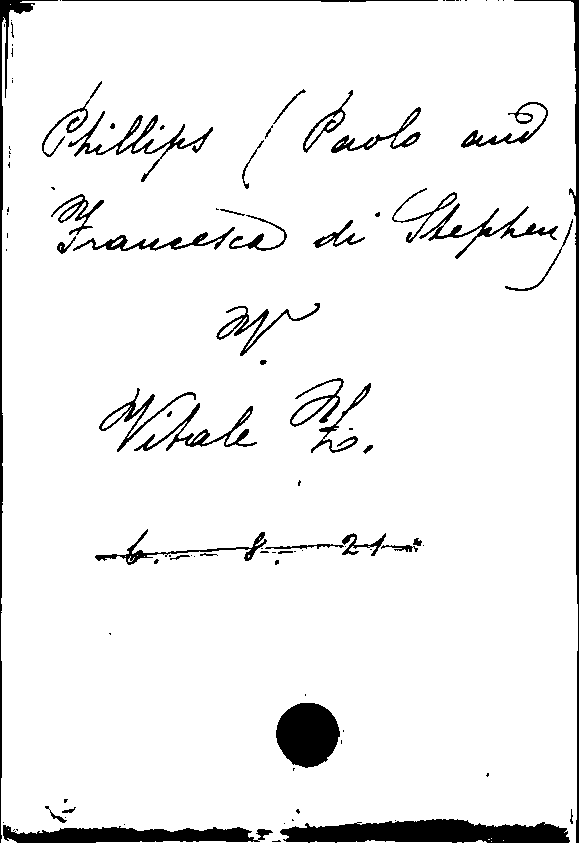 Phillips (Paolo and
Francesca di Stephen)
N.
Vitale F.
6. 8. 21